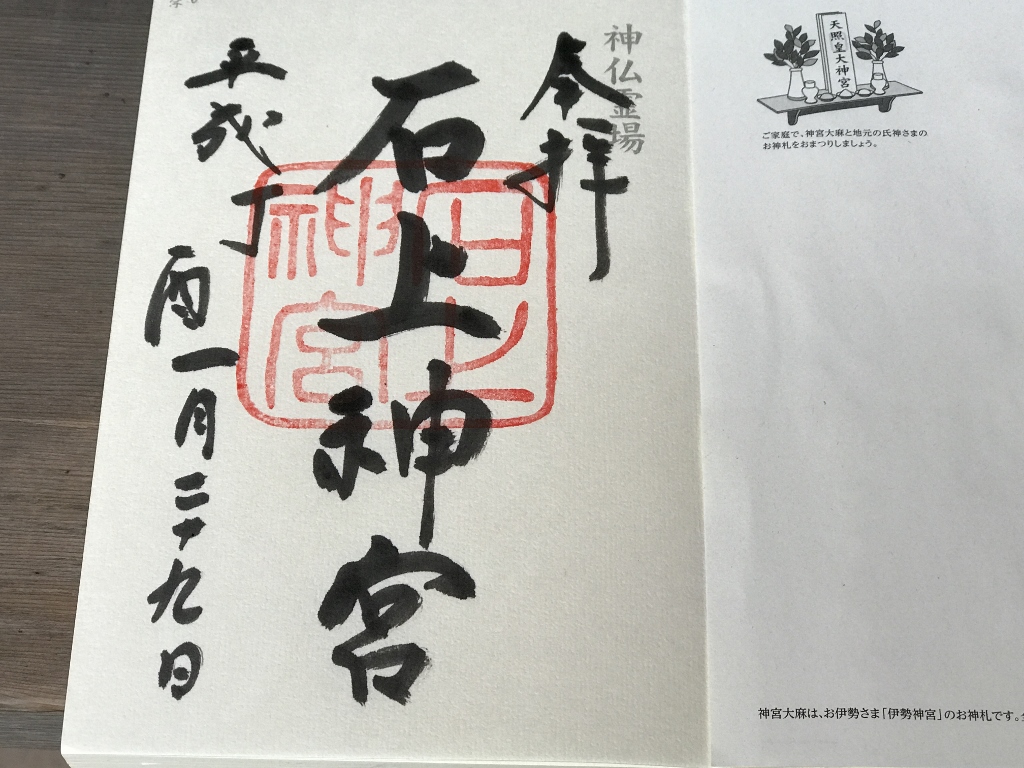 神仏霊場
奉拝
石上神宮
石上神宮
平成丁酉一月二十九日
天照皇大神宮
ご家庭で、神宮大麻と地元の氏神さまの
お神札をおまつりしましょう。
神宮大麻は、お伊勢さま「伊勢神宮」のお神札です。